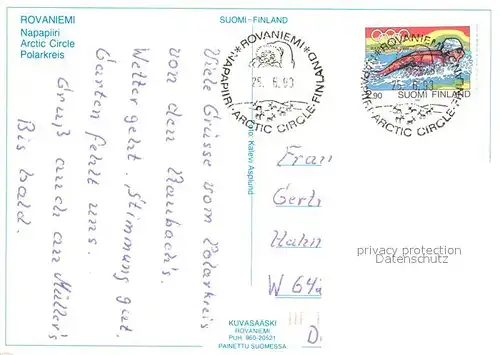 ROVANIEMI
Napapiiri
Arctic Circle
Polarkreis
SUOMI-FINLAND
ROVANIEMI
NAPAPIIRI-ARCTIC CIRCLE-FINLAND
25. 6. 93
ROVANIEMI
NAPAPIIRI-ARCTIC CIRCLE-FINLAND
25. 6. 93
2.90 SUOMI FINLAND
Viele Grüsse vom Polarkreis
von den Naubach's.
Wetter geht. Stimmung gut.
Garten fehlt uns.
Gruß auch an Müller's
Bis bald.
Foto: Kalevi Asplund
Gerh
Hahn
W 64
privacy protection
Datenschutz
KUVASÄÄSKI
ROVANIEMI
PUH. 960-20521
PAINETTU SUOMESSA